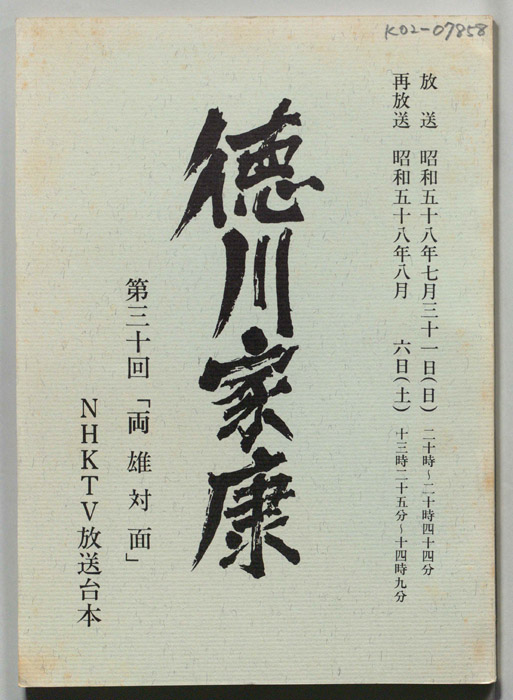 K02-07858
放送 昭和五十八年七月三十一日(日) 二十時~二十時四十四分
再放送 昭和五十八年八月 六日(土) 十三時二十五分~十四時九分
徳川家康
第三十回「両雄対面」
NHKTV放送台本